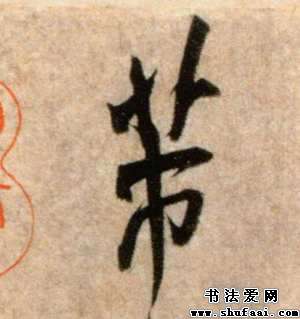 芾
书法爱网
www.shufaai.com